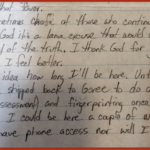 that power.
sometimes
of those who
God its a lame excuse that would
of the truth, I thank God for
I feel better.
idea how long I'll be here. Unt
shipped back to Goree to do
assessment) and fingerprinting once
I could be here a couple of w
have phone access nor will I